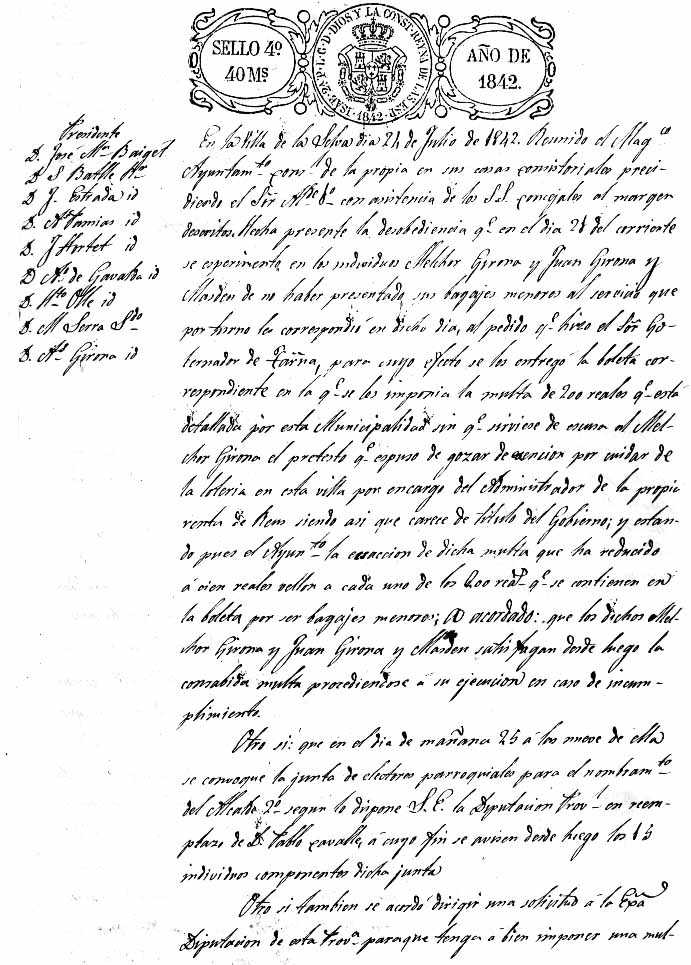 SELLO 4º
40 Ms
ISAB. 2.ª P. L. G. D. DIOS Y LA CONST. REYNA DE LAS ESP.
1842
AÑO DE
1842.
Presidente
D. José Mª Baiget
D. S Batlle
D J. Estrada id
D. Nº Tamias id
D. J Hortet id
D Nº de Gavalda id
D. Olle id
D. M Serra Sdo
D. Girona id
En la Villa de la Selva dia 24 de Julio de 1842. Reunido el Magco
Ayuntamto const de la propia en sus casas consistoriales presi-
diendo el Sor Alde 1º con asistencia de los S.S. concejales al margen
descritos. Hecha presente la desobediencia qe en el dia 21 del corriente
se esperimento en los individuos Melchor Girona y Juan Girona y
Masden de no haber presentado sus bagajes menores al servicio que
por turno les correspondió en dicho dia, al pedido qe hizo el Sor Go-
bernador de Tarrna, para cuyo efecto se les entregó la boleta cor-
respondiente en la qe se les imponia la multa de 200 reales qe está
detallada por esta Municipalidad sin qe sirviese de escusa al Mel-
chor Girona el pretesto qe espuso de gozar de esencion por cuidar de
la loteria en esta villa por encargo del Administrador de la propia
renta de Reus siendo asi que carece de titulo del Gobierno; y estan-
do pues el Ayunto la esaccion de dicha multa que ha reducido
á cien reales vellon a cada uno de los 200 reas qe se contienen en
la boleta por ser bagajes menores; acordado: que los dichos Mel-
chor Girona y Juan Girona y Masden satisfagan desde luego la
consabida multa procediendose a su ejecucion en caso de incum-
plimiento.
Otro si: que en el dia de mañana 25 á las nueve de ella
se convoque la junta de electores parroquiales para el nombramto
del Alcalde 2º segun lo dispone S.E. la Diputacion Provl en reem-
plazo de D. Pablo Cavalle, á cuyo fin se avisen desde luego los 15
individuos componentes dicha junta
Otro si tambien se acordó dirigir una solicitud á la Exma
Diputacion de esta Prova paraque tenga á bien imponer una mul-